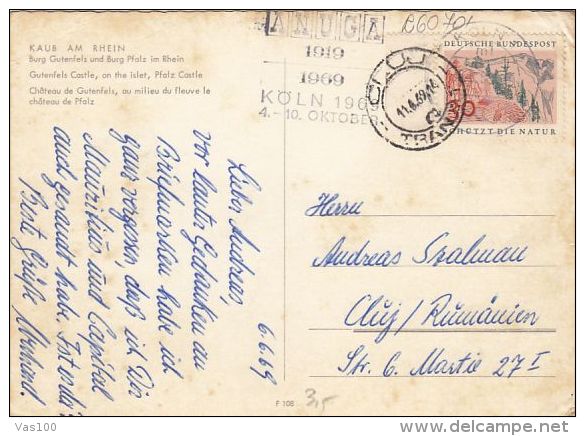 KAUB AM RHEIN
Burg Gutenfels und Burg Pfalz im Rhein
Gutenfels Castle, on the islet, Pfalz Castle
Château de Gutenfels, au milieu du fleuve le
château de Pfalz
ANUGA
1919
1969
KÖLN 1969
4.-10. OKTOBER
CLUJ
11.6.69
TRANZIT
DEUTSCHE BUNDESPOST
30
SCHÜTZT DIE NATUR
6.6.69
Lieber Andreas,
vor lauter Gedanken an
Briefmarken habe ich
ganz vergessen, daß ich Dir
Mauritius und Capital
auch gesandt habe. Ist es da?
Beste Grüße
Herrn
Andreas Szalman
Cluj/Rumänien
Str. 6. Martie 27 I
F 108
3,-
Vas100
www.delcampe.net